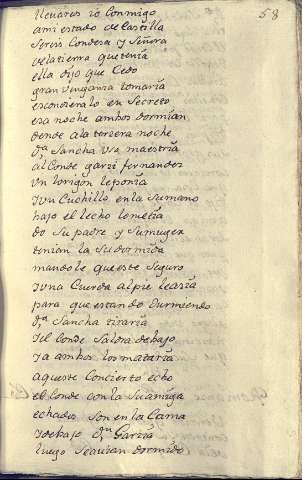 58
lleuares io Conmigo
a mi estado de Castilla
sereis Condesa y Señora
de la tierra que tenia
ella dijo que Cedo
gran venganza tomaria
escondieralo en Secreto
esa noche ambos dormian
dende a la terzera noche
d.ª Sancha usa maestria
al Conde garzi fernandez
vn lorigon le ponia
y vn Cuchillo en la su mano
bajo el lecho lo metia
do su padre y su muger
tenian la su dormida
mandole que este Seguro
y una Cuerda al pie learia
para que estando Durmiendo
d.ª Sancha tiraria
y el Conde Saldra debajo
y a ambos los mataria
aqueste Concierto echo
el Conde con la Su amiga
echados son en la Cama
y debajo d.n Garzia
luego se auian dormido